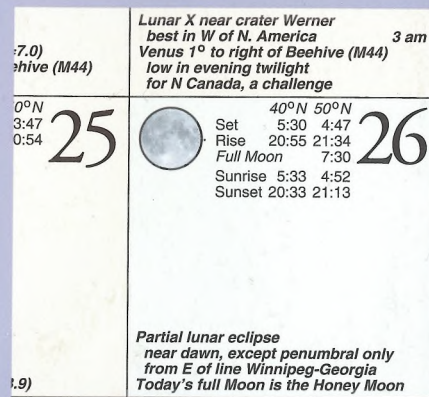 Lunar X near crater Werner
best in W of N. America 3 am
Venus 1º to right of Beehive (M44)
low in evening twilight
for N Canada, a challenge
7.0)
ehive (M44)
0º N
3:47
0:54
25
40º N 50º N
Set 5:30 4:47
Rise 20:55 21:34
Full Moon 7:30
Sunrise 5:33 4:52
Sunset 20:33 21:13
26
Partial lunar eclipse
near dawn, except penumbral only
from E of line Winnipeg-Georgia
Today's full Moon is the Honey Moon
.9)